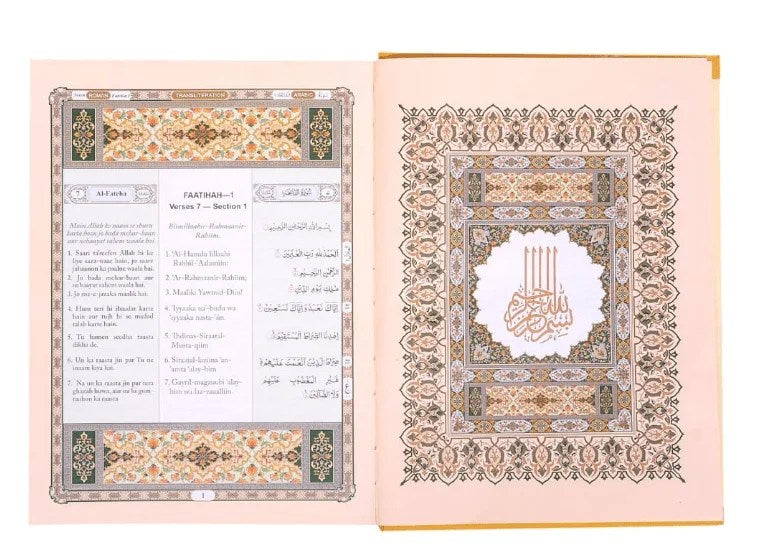 Surah ROMAN Faatiha-1 TRANSLITERATION ARABIC
7 Al-Fateha
Main Allah ke naam se shuru
karta hoon jo bada meharbaan
aur nehaayat rahem waala hai.
1. Saari taareefen Allah hi ke
liye saza-waar hain, jo saare
jahaanon ka paalne waala hai.
2. Jo bada meharbaan aur
nehaayat rahem waala hai.
3. Jo roz-e-jazaka maalik hai.
4. Hum teri hi ibaadat karte
hain aur tujh hi se madad
talab karte hain.
5. Tu hamen seedha raasta
dikha de.
6. Un ka raasta jin par Tu ne
inaam kiya hai.
7. Na un ka raasta jin par tera
ghazab huwa, aur na hi gum-
raahon ka raasta
FAATIHAH—1
Verses 7 — Section 1
Bismillaahir-Rahmaanir-
Rahiim.
1. 'Al-Hamdu lillaahi
Rabbil-'Aalamiin;
2. 'Ar-Rahmaanir-Rahiim;
3. Maaliki Yawmid-Diin!
4. 'Iyyaaka na'-budu wa
'iyyaaka nasta-'iin.
5. 'Ihdinas-Siraatal-
Musta-qiim
6. Siraatal-laziina 'an-
'amta 'alay-him
7. Gayril-magzuubi 'alay-
him wa laz-zaaalliin.
سُورَةُ الْفَاتِحَة
بِسْمِ اللهِ الرَّحْمٰنِ الرَّحِيْمِ
اَلْحَمْدُ لِلّٰهِ رَبِّ الْعٰلَمِيْنَ
الرَّحْمٰنِ الرَّحِيْمِ
مٰلِكِ يَوْمِ الدِّيْنِ
اِيَّاكَ نَعْبُدُ وَاِيَّاكَ نَسْتَعِيْنُ
اِهْدِنَا الصِّرَاطَ الْمُسْتَقِيْمَ
صِرَاطَ الَّذِيْنَ اَنْعَمْتَ عَلَيْهِمْ
غَيْرِ الْمَغْضُوْبِ عَلَيْهِمْ
وَلَا الضَّآلِّيْنَ
1
بسم الله الرحمن الرحيم